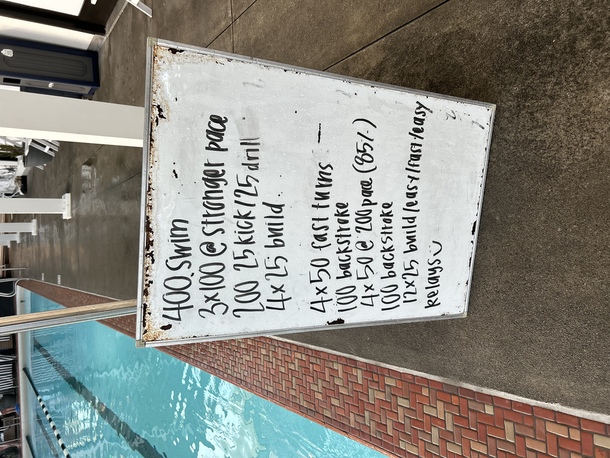 400 Swim
3x100 @ stronger pace
200 25 kick/25 drill
4x25 build
4x50 fast turns
100 backstroke
4x50 @ 200 pace (85%)
100 backstroke
12x25 build/easy/fast/easy
Relays